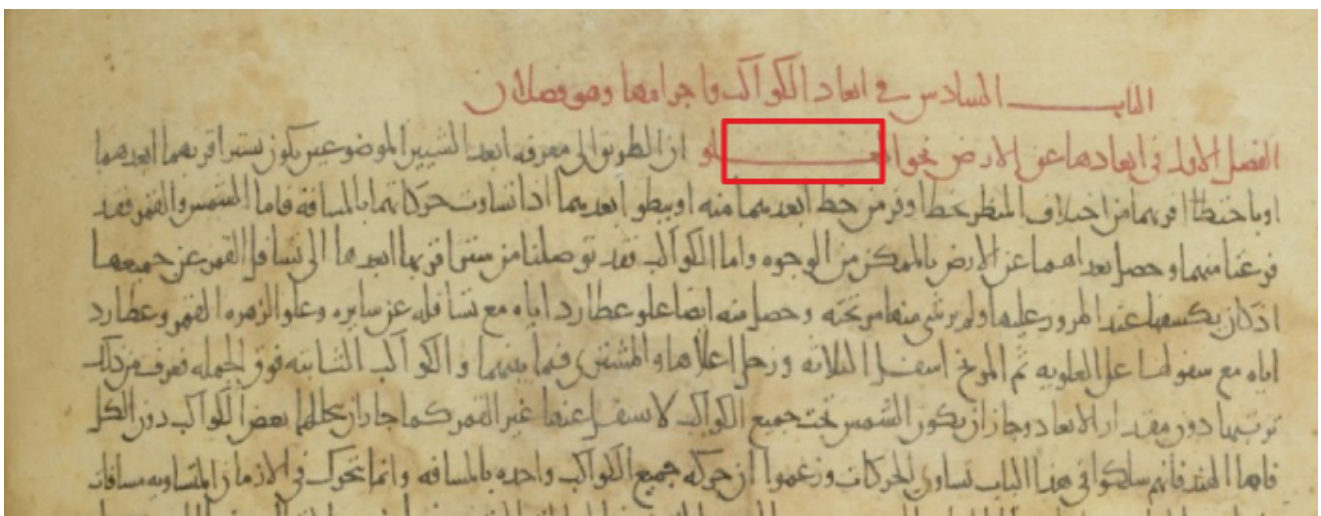 الباب السادس في ابعاد الكواكب واجرامها وهو فصلان
الفصل الاول في ابعادها عن الارض نحو العلو ان الطريق الى معرفه ابعد الشيين الموضوعين يكون بستر اقربهما ابعدهما
او باختطاط اقربهما من اختلاف المنظر خطا اوفر من خط ابعدهما منه او ببطو ابعدهما اذا تساوت حركاتهما بالمسافه فاما الشمس والقمر فقد
فرغنا منهما وحصل بعداهما عن الارض بالممكن من الوجوه واما الكواكب فقد توصلنا من ستر اقربها ابعدها الى تسافل القمر عن جميعها
اذ كان يكسفها عند المرور عليها ولم ير شي منها من تحته وحصل منه ايضا علو عطارد اياه مع تسافله عن سايره وعلو الزهره القمر وعطارد
اياه مع سفولها عن العلويه ثم المريخ اسفل الثلاثه وزحل اعلاها والمشترى فيما بينهما والكواكب الثابته فوق الجمله فعرف من ذلك
ترتيبها دون مقدار الابعاد وجاز ان يكون الشمس تحت جميع الكواكب لا يسفل عنها غير القمر كما جاز ان يتخللها بعض الكواكب دون الكل
فاما الهند فانهم سلكوا في هذا الباب تساوي الحركات وزعموا ان حركه جميع الكواكب واحده بالمسافه وانما تتحرك في الازمان المتساويه مسافات